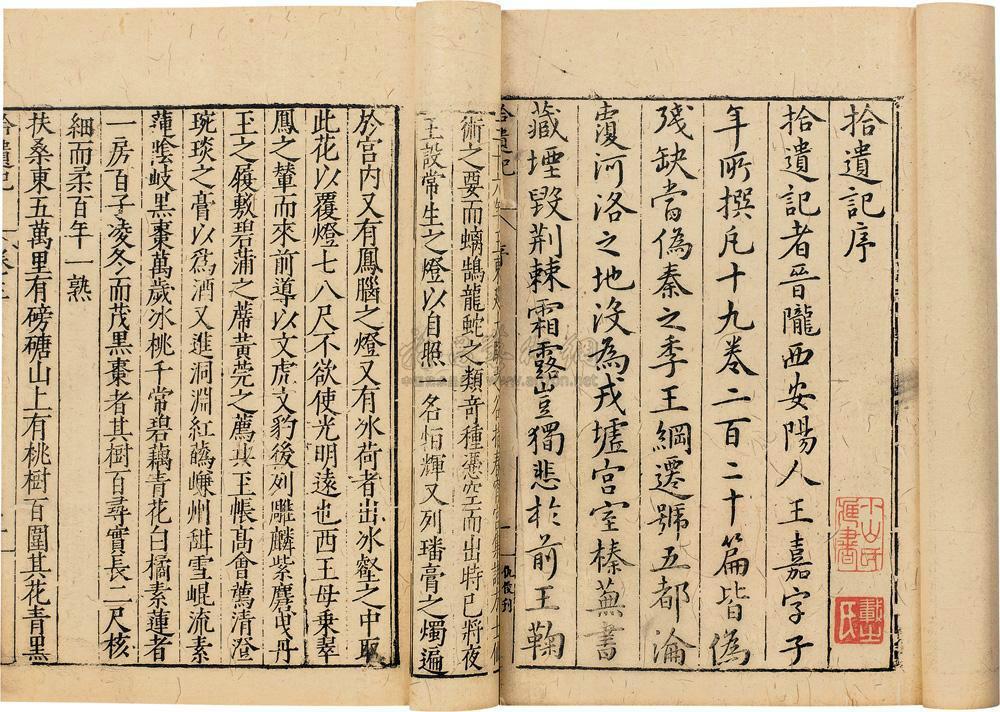 拾遺記序
拾遺記者晋隴西安陽人王嘉字子
年所撰凡十九卷二百二十篇皆偽
殘缺當偽秦之季王綱遷號五都淪
覆河洛之地沒為戎墟宫室榛蕪書
藏堙毀荆棘霜露豈獨悲扵前王鞠
拾遺記
術之要而螭鵠龍蛇之類奇種憑空而出時已將夜
王設常生之燈以自照 名恒輝又列璠膏之燭遍
於宮內又有鳳腦之燈又有冰荷者出冰壑之中取
此花以覆燈七八尺不欲使光明遠也西王母乘翠
鳳之輦而來前導以文虎文豹後列雕麟紫麏曳丹
玉之履敷碧蒲之蓆黃莞之薦共王帳高會薦清澄
琬琰之膏以爲酒又進洞淵紅蘤嵊州甜雪崐流素
蓮陰岐黑棗萬歲冰桃千常碧藕青花白橘素蓮者
一房百子凌冬而茂黑棗者其樹百尋實長二尺核
細而柔百年一熟
扶桑東五萬里有磅磄山上有桃樹百圍其花青黑
拾遺記 卷三